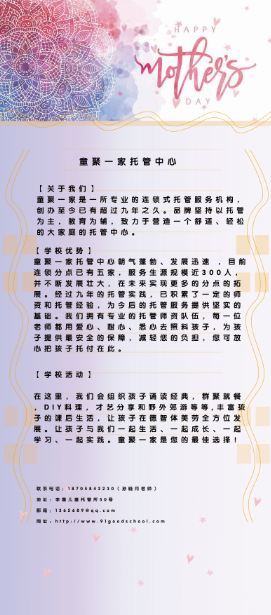 HAPPY
mother's
DAY
童聚一家托管中心
【关于我们】
童聚一家是一所专业的连锁式托管服务机构，
创办至今已有超过九年之久。品牌坚持以托管
为主，教育为辅，致力于营造一个舒适、轻松
的大家庭的托管中心。
【学校优势】
童聚一家托管中心朝气蓬勃、发展迅速，目前
连锁分点已有五家，服务生源规模近300人，
并不断发展壮大，在未来实现更多的分点的拓
展。经过九年的托管实践，已积累了一定的师
资和托管经验，为今后的托管服务提供坚实的
基础。我们拥有专业的托管师资队伍，每一位
老师都用爱心、耐心、悉心去照料孩子，为孩
子提供最安全的保障，减轻您的负担，您可放
心把孩子托付在此。
【学校活动】
在这里，我们会组织孩子诵读经典，群聚就餐
，DIY料理，才艺分享和野外郊游等等,丰富孩
子的课后生活，让孩子在德智体美劳全方位发
展。让孩子与我们一起生活、一起成长、一起
学习、一起实践。童聚一家是您的最佳选择！
联系电话：18705842230（游 月老师）
地址：李 儿童托管所50号
邮箱：1262689@qq.com
网址：http://www.91goodschool.com